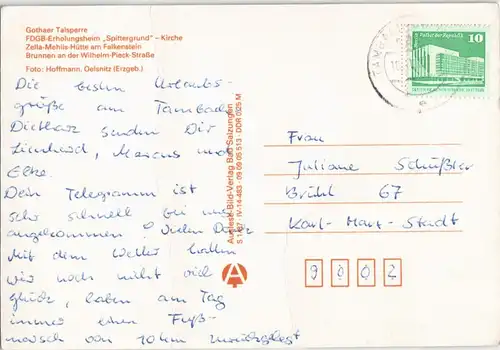 Gothaer Talsperre
FDGB-Erholungsheim „Spittergrund“ – Kirche
Zella-Mehlis-Hütte am Falkenstein
Brunnen an der Wilhelm-Pieck-Straße
Foto: Hoffmann, Oelsnitz (Erzgeb.)
Palast der Republik 10
Die besten Urlaubs-
grüße aus Tambach
Dietharz senden Dir
Lienhard, Marcus und
Elke.
Dein Telegramm ist
sehr schnell bei uns
angekommen. Vielen Dank
Mit dem Wetter hatten
wir noch nicht viel
Glück, haben am Tag
immer einen Fuß-
marsch von 10 km zurückgelegt
Auslese-Bild-Verlag Bad Salzungen
S 1/81 IV-14-483 09 09 05 513 DDR 0,25 M
A
Frau
Juliane Schüßler
Brühl 67
Karl-Marx-Stadt
9002